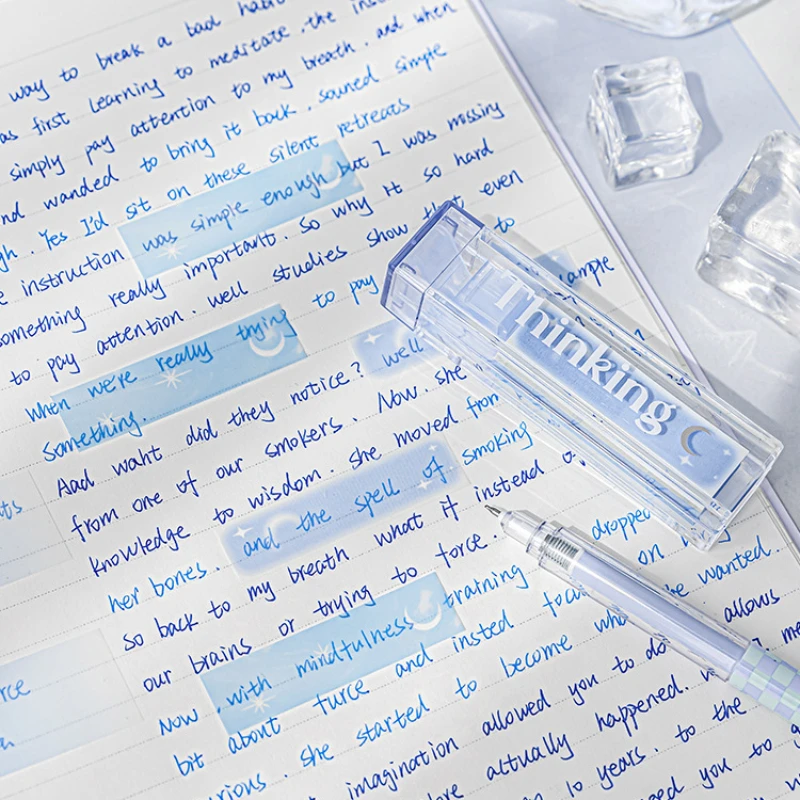 way to break a bad habit
as first learning to meditate . the ins
simply pay attention to my breath . and when
nd wanded to bring it back . souned simple
gh . Yes I'd sit on these silent retreats
e instruction was simple enough but I was missing
something really important . So why it so hard
to pay attention . well studies show that even
when we're really trying to pay to
Something. ample
Aad waht did they notice ? well
from one of our smokers . Now . she
knowledge to wisdom . she moved from
her bones . and the spell of smoking
so back to my breath what it instead o
our brains or trying to force. dropped
Now . with mindfulness training on
bit about turce and insted focu wanted.
rious . she started to become wha
imagination allowed you to do allows
re actually happened.
in 10 years . to the
need you to
ts
rce
Thinking